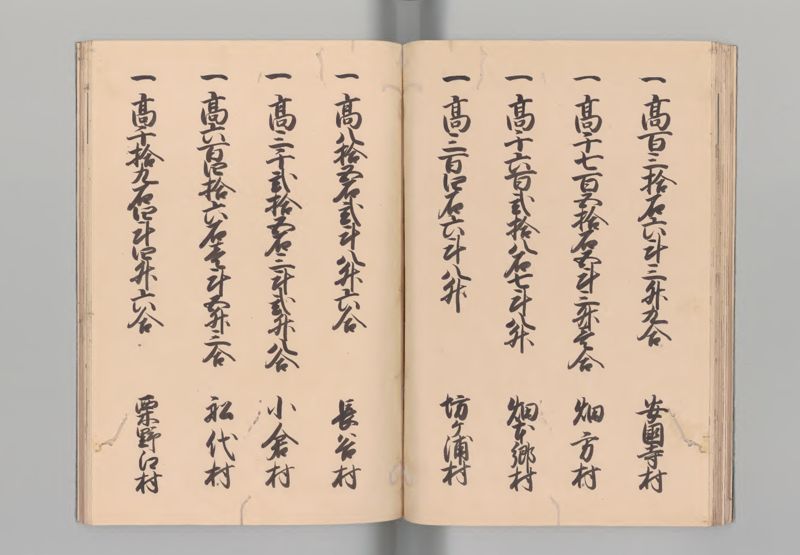 一高百三拾石六斗三升九合 安國寺村
一高千七百五拾石五斗二升壱合 畑方村
一高千六百弐拾八石七斗八升 畑古郷村
一高三百四石六斗八升 坊ケ浦村
一高八拾五石弐斗八升六合 長谷村
一高三千弐拾五石三斗弐升八合 小倉村
一高六百四拾六石壱斗五升三合 松代村
一高千拾九石四斗四升六合 粟野江村